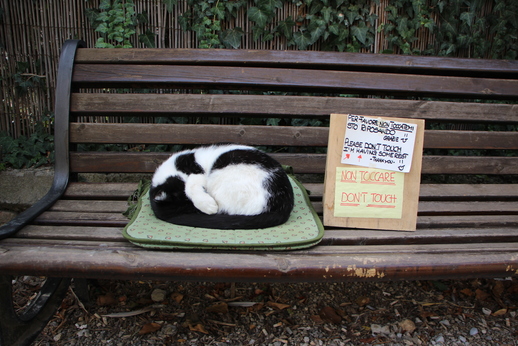 PER FAVORE NON TOCCATEMI!
STO RIPOSANDO
GRAZIE
PLEASE DON'T TOUCH
I'M HAVING SOME REST
- THANK YOU -
NON TOCCARE
DON'T TOUCH